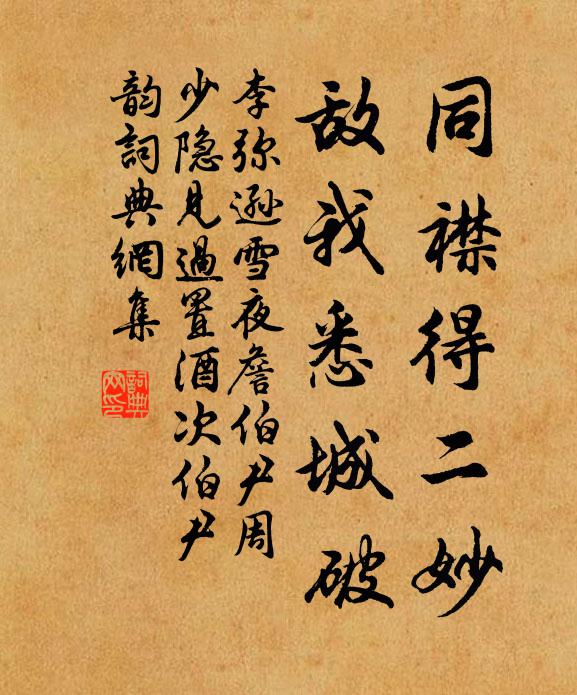 同襟得二妙
敌我悉城破
李弥逊雪夜詹伯尹周
少隐见過置酒次伯尹
韵詞典網集
詞典
网印